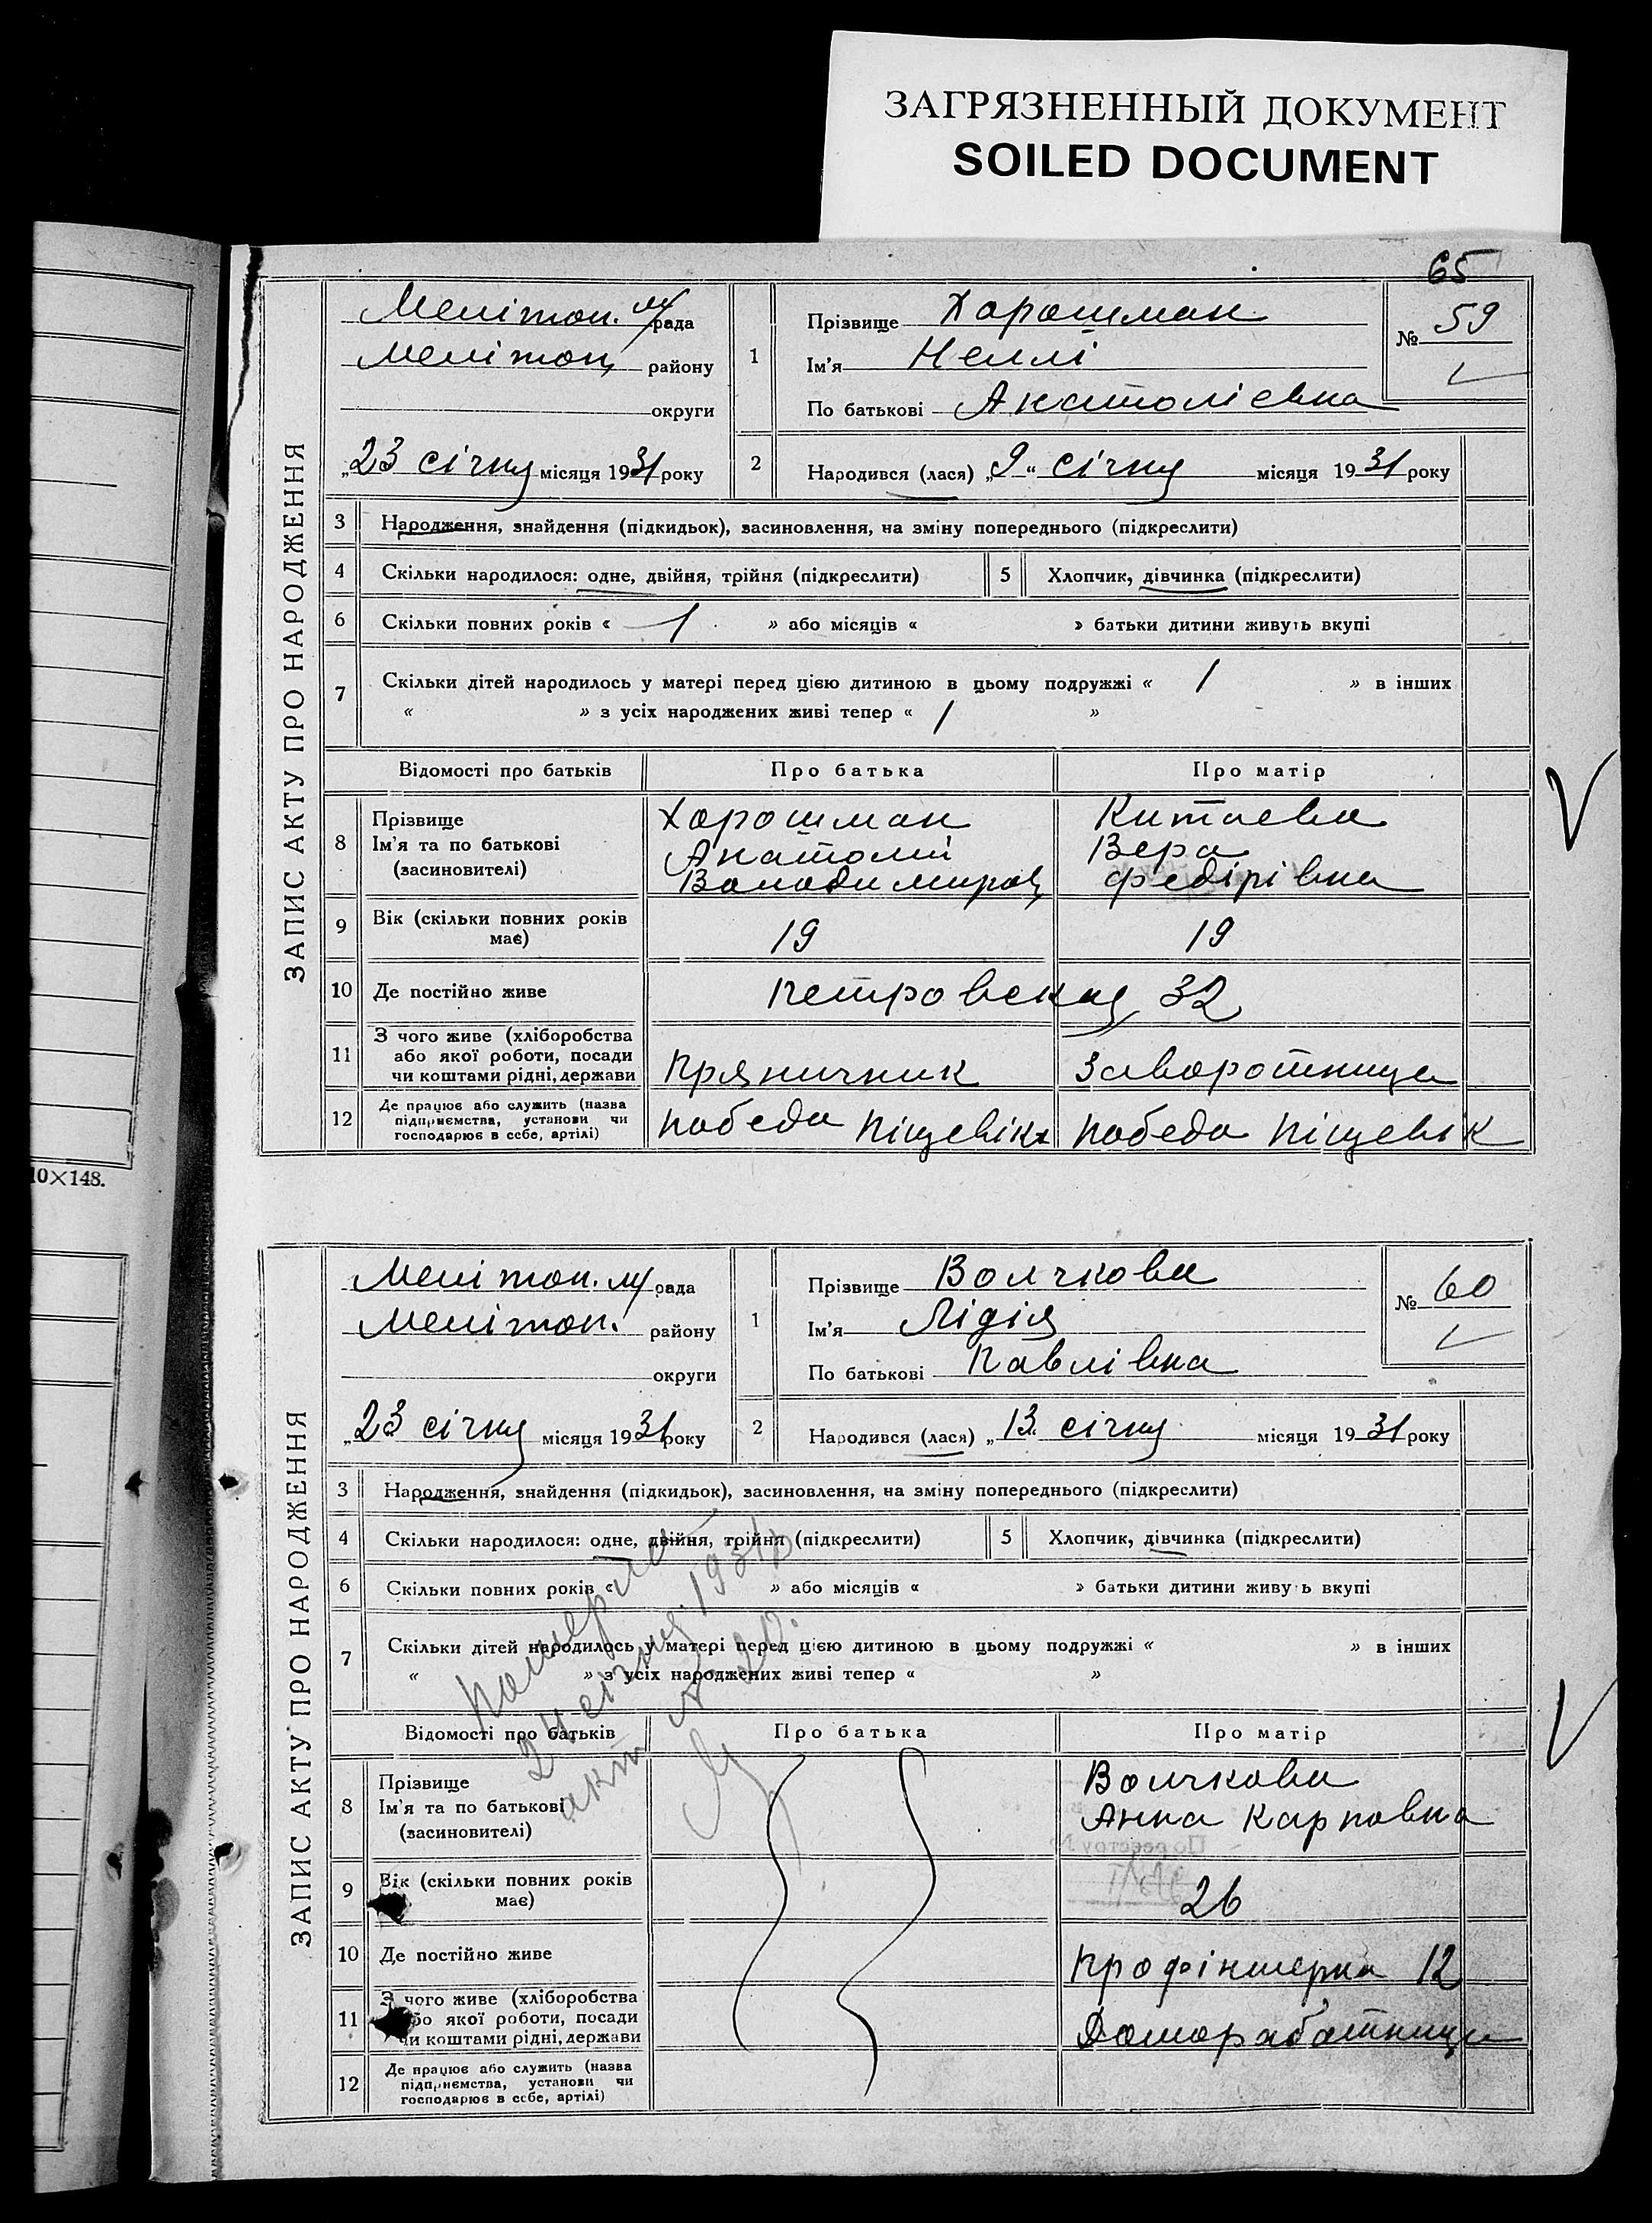 ЗАГРЯЗНЕННЫЙ ДОКУМЕНТ
SOILED DOCUMENT
10×148.
65
ЗАПИС АКТУ ПРО НАРОДЖЕННЯ
Мелітоп. м/рада
Мелітоп, району
округи
„23 січня місяця 1931 року
1
Прізвище Харошман
Ім'я Неллі
По батькові Анатолієвна
№ 59
2
Народився (лася) „9" січня місяця 1931 року
3 Народження, знайдення (підкидьок), засиновлення, на зміну попереднього (підкреслити)
4 Скільки народилося: одне, двійня, трійня (підкреслити)
5 Хлопчик, дівчинка (підкреслити)
6 Скільки повних років « 1 » або місяців « » батьки дитини живуть вкупі
7 Скільки дітей народилось у матері перед цією дитиною в цьому подружжі « 1 » в інших
« » з усіх народжених живі тепер « 1 »
Відомості про батьків Про батька Про матір
8 Прізвище
Ім'я та по батькові
(засновителі)
Харошман
Анатолій
Володимиров,
Китаева
Вера
Федірівна
9 Вік (скільки повних років
має)
19 19
10 Де постійно живе Петровская 32
11 З чого живе (хліборобства
або якої роботи, посади
чи коштами рідні, держави
Пряничник Заворотница
12 Де працює або служить (назва
підприємства, установи чи
господарює в себе, артілі)
Победа Піщевік Победа Піщевік
ЗАПИС АКТУ ПРО НАРОДЖЕННЯ
Мелітоп. м/рада
Мелітоп. району
округи
„23 січня місяця 1931 року
1
Прізвище Волчкова
Ім'я Лідія
По батькові Павлівна
№ 60
2
Народився (лася) „13" січня місяця 1931 року
3 Народження, знайдення (підкидьок), засиновлення, на зміну попереднього (підкреслити)
4 Скільки народилося: одне, двійня, трійня (підкреслити)
5 Хлопчик, дівчинка (підкреслити)
6 Скільки повних років « » або місяців « » батьки дитини живуть вкупі
7 Скільки дітей народилось у матері перед цією дитиною в цьому подружжі « » в інших
« » з усіх народжених живі тепер « »
Померла
24 січня 1931 р
акт № 20.
Відомості про батьків Про батька Про матір
8 Прізвище
Ім'я та по батькові
(засиновителі)
Волчкова
Анна Карповна
9 Вік (скільки повних років
має)
26
10 Де постійно живе Профінтерна 12
11 З чого живе (хліборобства
або якої роботи, посади
чи коштами рідні, держави
Домоработница
12 Де працює або служить (назва
підприємства, установи чи
господарює в себе, артілі)